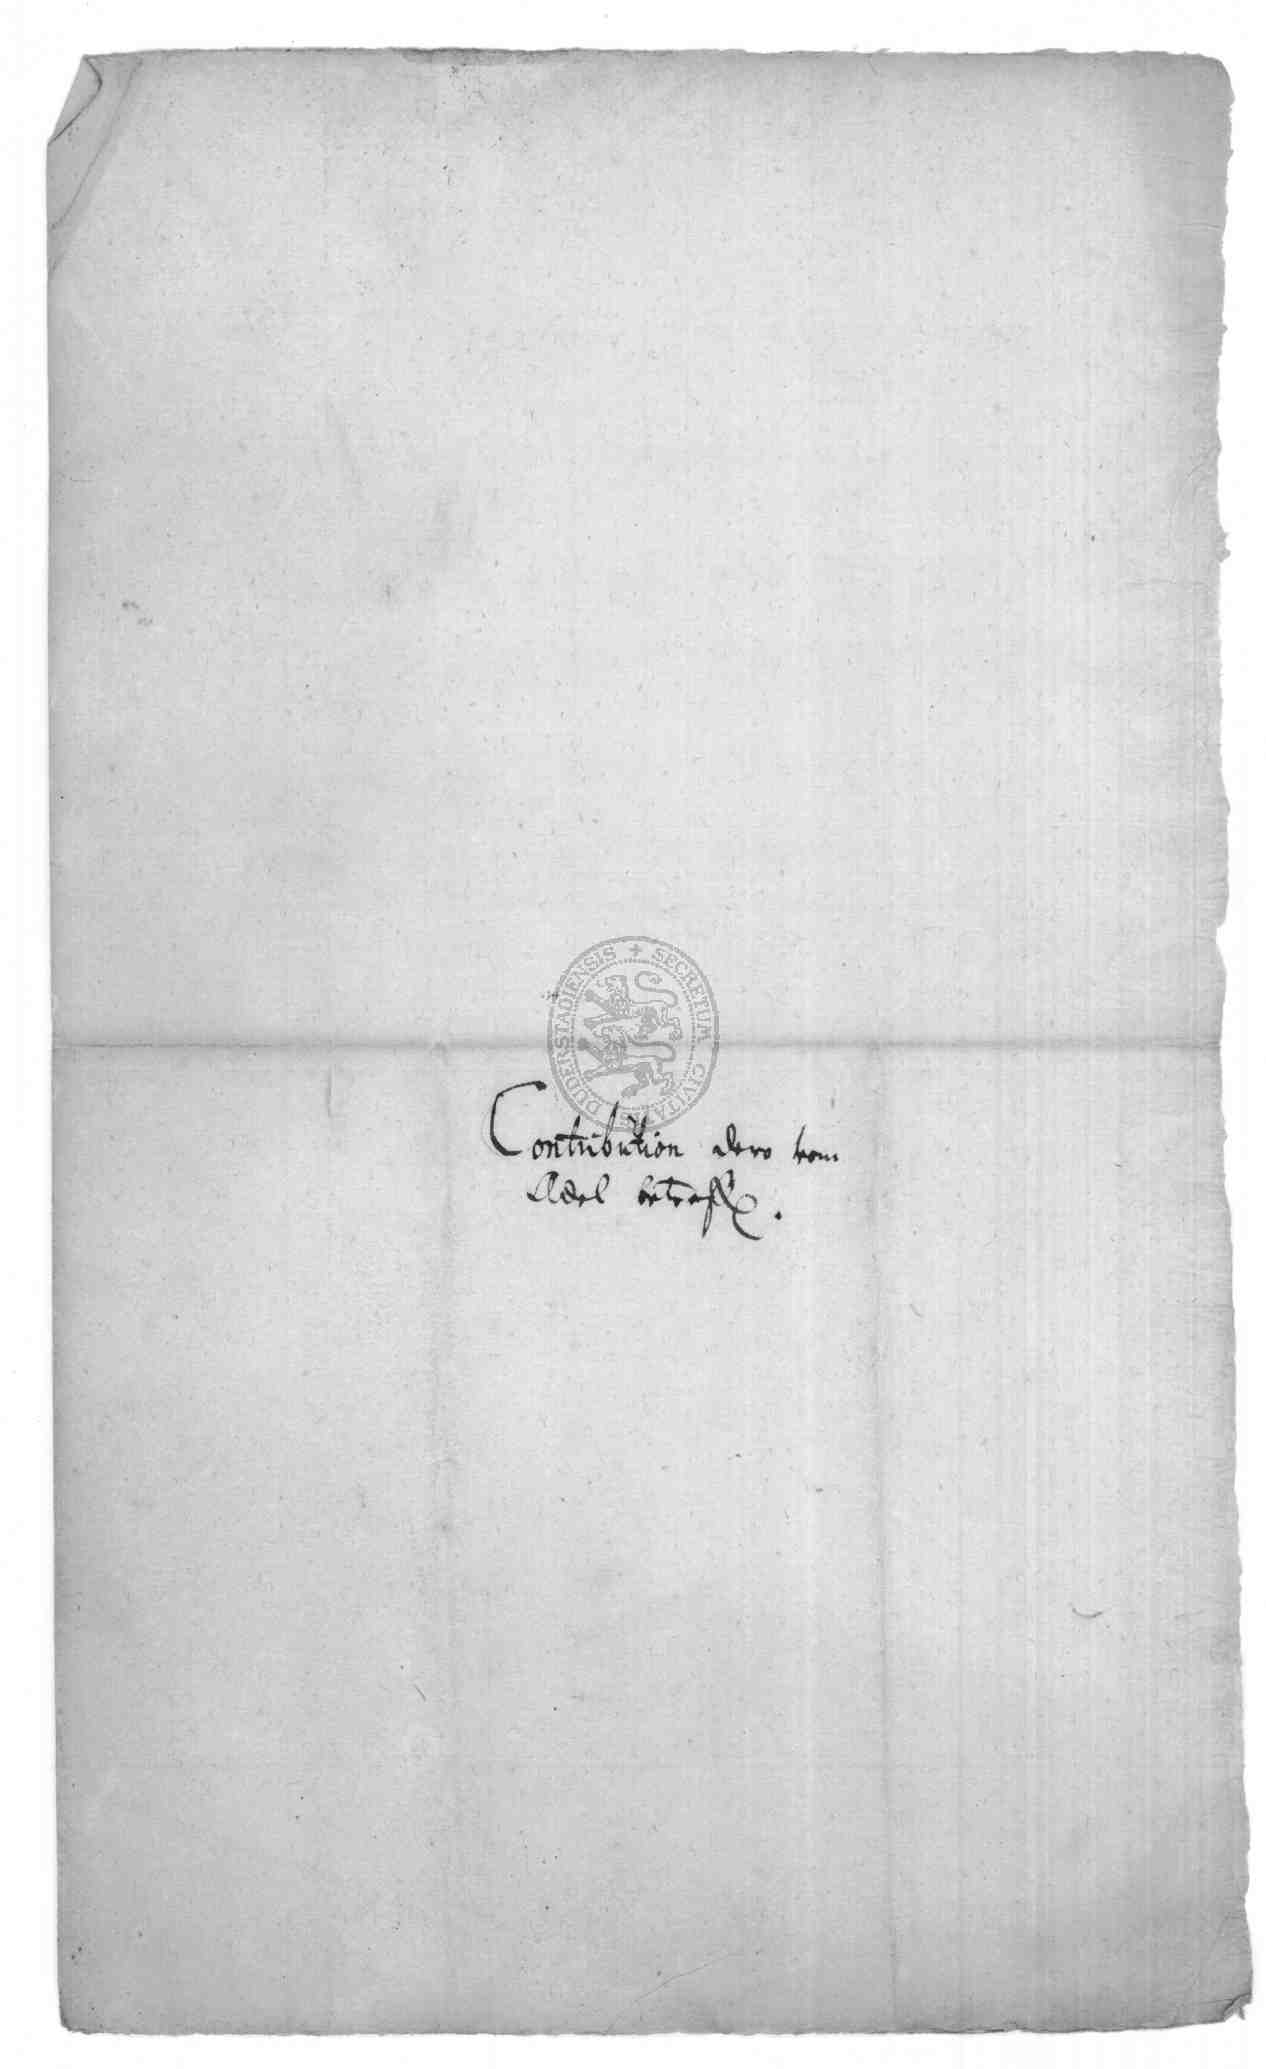 SECRETUM CIVITATIS DUDERSTADIENSIS
Contribution dero vom
Adel betreff.